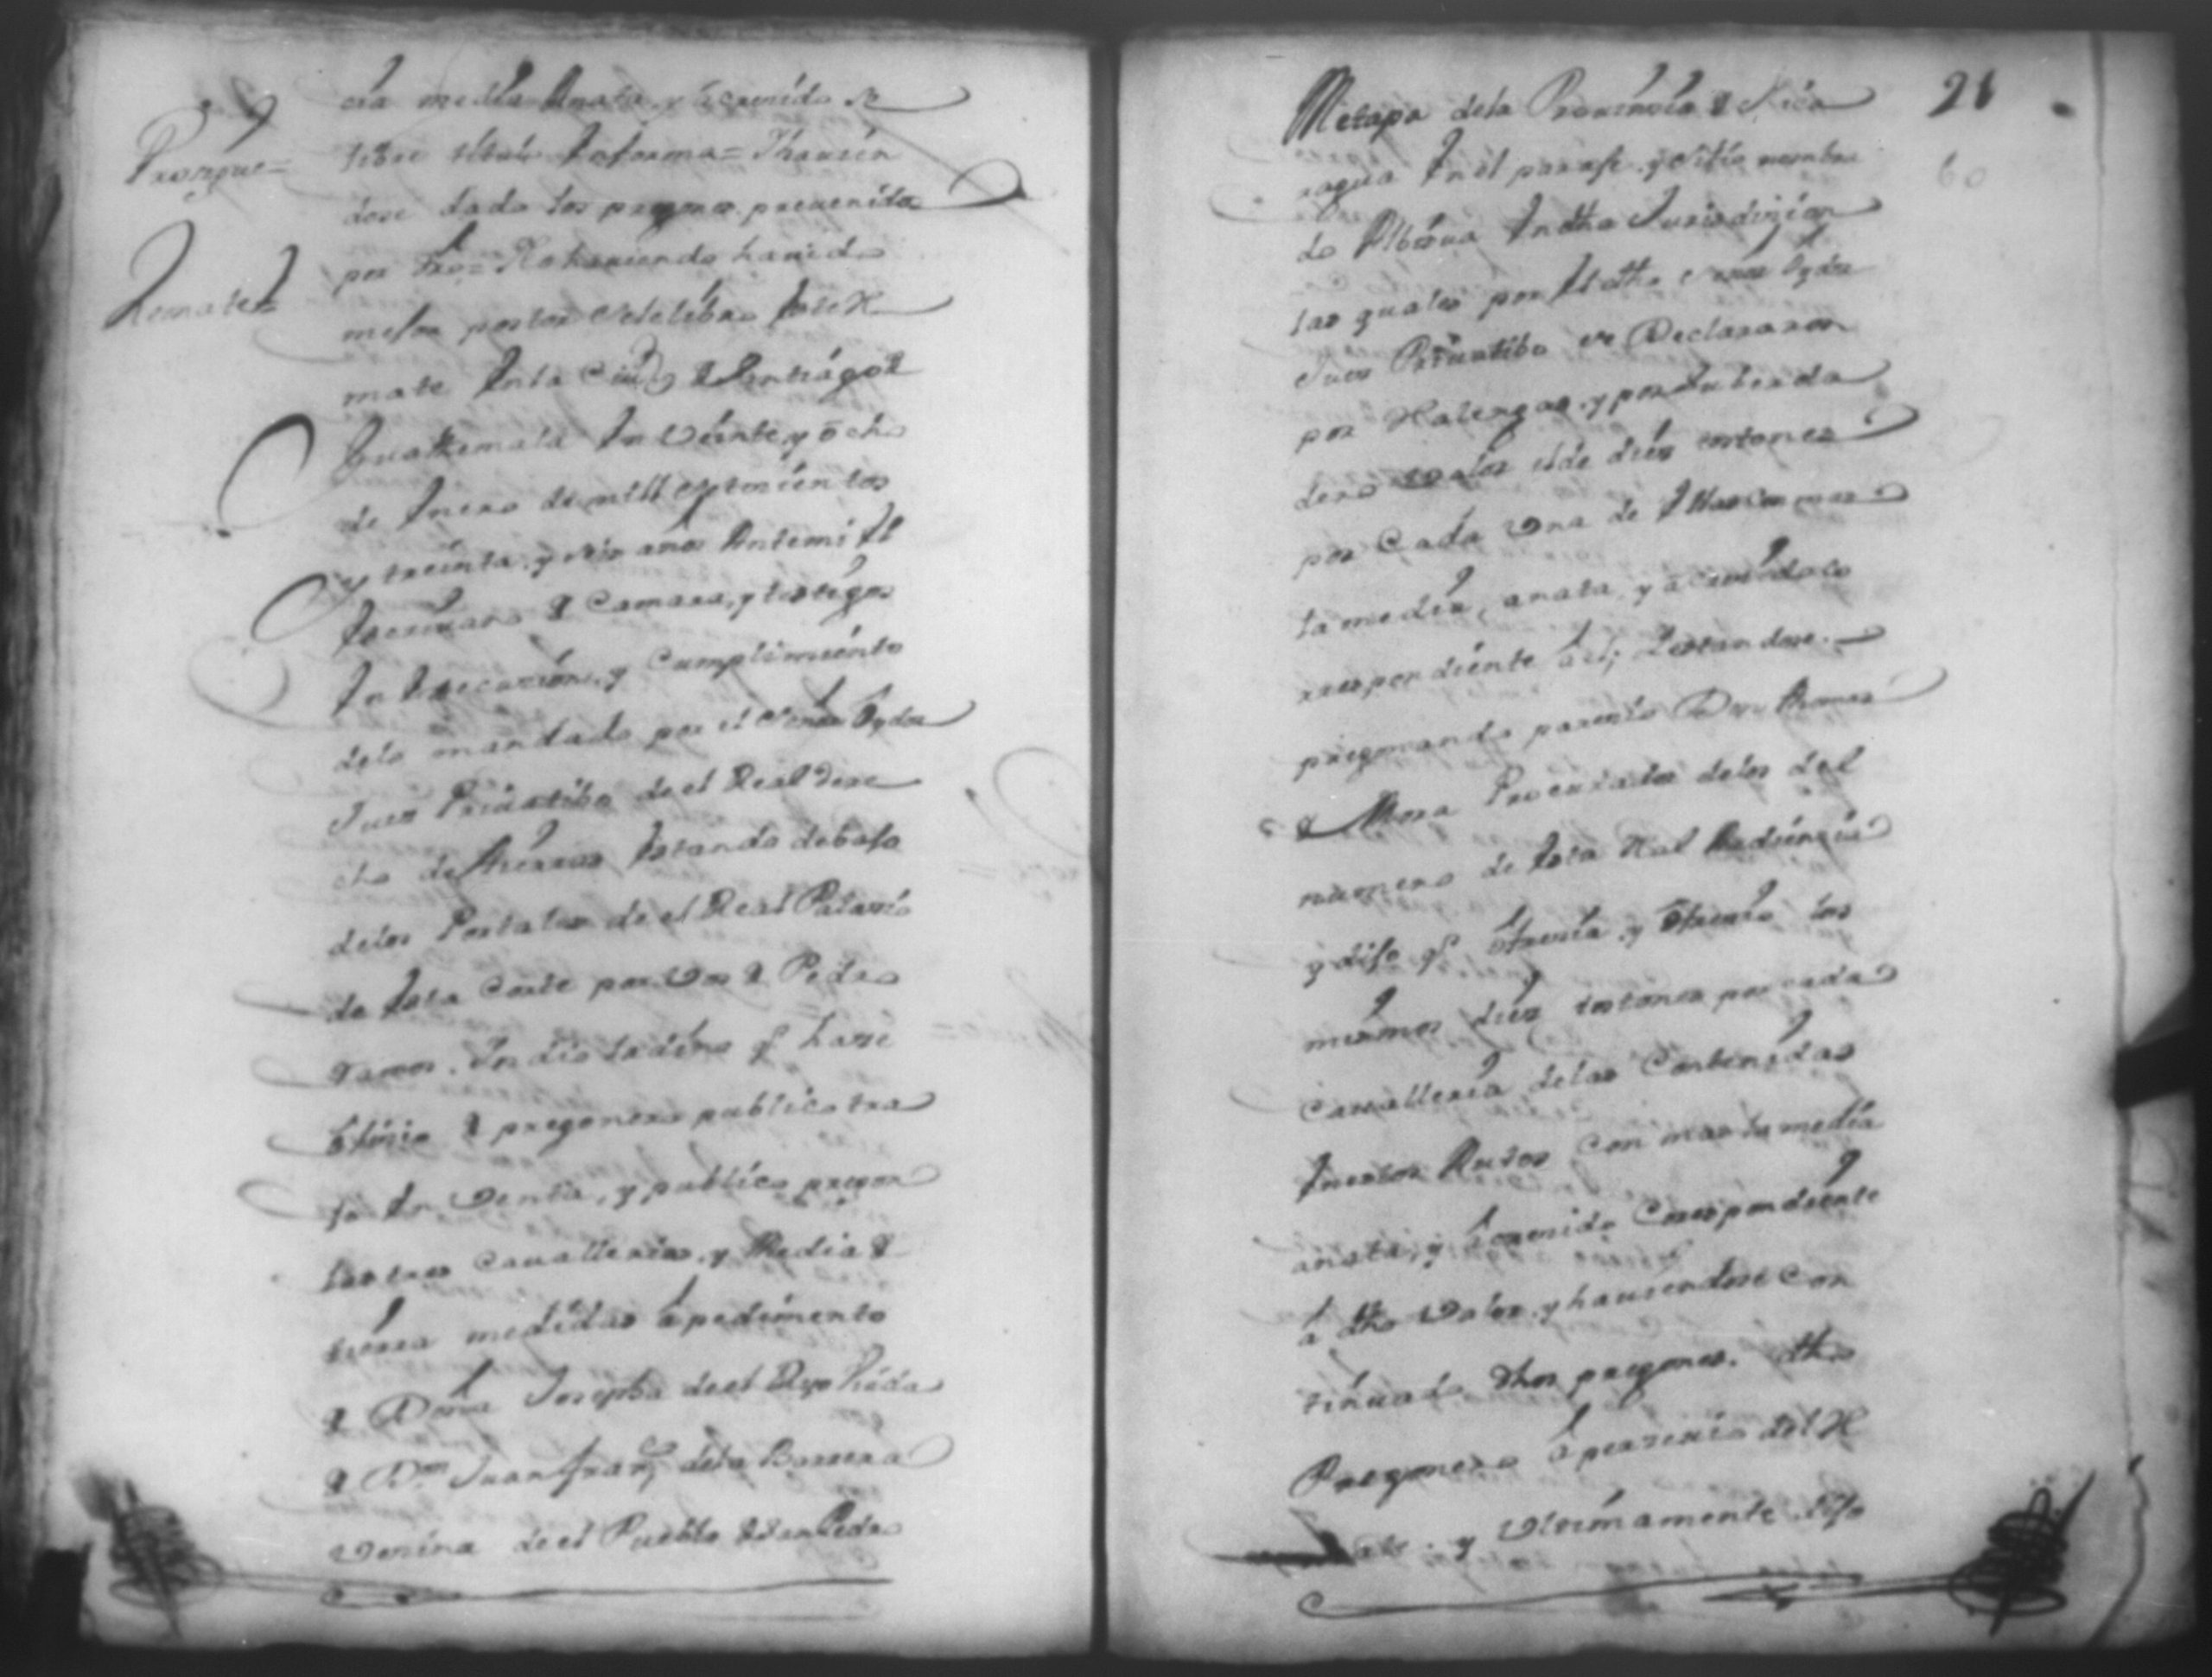 Prosigue=
Remate=
cia media Anata, y acarreido se
libre titulo En forma= Ihauien
dose dado los pregones preuenidos
por Auto= No hauiendo hauido
mejor postor se celebro Este Re
mate En la Ciud de Santiago de
Guathemala En Veinte y ocho
de Enero de mill septecientos
y treinta, y seis años Ante mi El
Escriuano de Camara, y testigos
En Execucion, y Cumplimiento
delo mandado por el Señor Oydor
Juez Priuatibo de el Real dere
cho de tierras Estando debajo
delos Portales de el Real Palacio
de Esta Corte por Vos de Pedro
Ramos. Indio ladino q haze
Oficio de pregonero publico tra
jo En Venta, y publico pregon
las tres cauallerias, y Media de
tierra medidas à pedimento
de Doña Josepha de el Uiuda
de Dn Juan Franco dela Barrera
Vezina de el Pueblo de San Pedro
21
60
Metapa dela Prouincia de Nica
ragua En el paraje, y sitio nombra
do En dha Jurisdizion
las quales por El dho Señor Oydor
Juez Priuatibo se Declararon
por Realengas, y por su berda
dero Valor el de diez tostones
por Cada Vna de Ellas con mas
la media, anata, y acarreido co
rrespondiente à el; Y estandose
pregonando parecio Don Thomas
de Mora Procurador delos del
numero de Esta Real Audiencia
y dijo q Ofrecia, y Ofrecio los
mismos diez tostones por cada
Cavalleria delas Contenidas
En estos Autos con mas la media
anata, y acarreido Correspondiente
à dho Valor, y hauiendose con
tinuado dhos pregones. dho
Pregonero à perceuio del Re
mate. y Vltimamente dijo